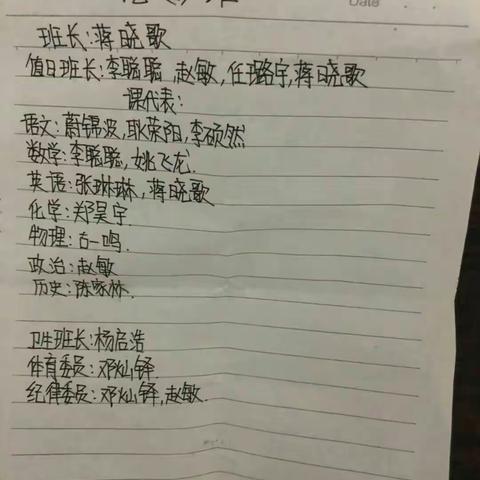 Date
班长:蒋晓歌
值日班长:李聪聪,赵敏,任璐宇,蒋晓歌
课代表:
语文:蔚锦波,耿荣阳,李硕然
数学:李聪聪,姚飞龙.
英语:张琳琳,蒋晓歌
化学:郑昊宇.
物理:古一鸣.
政治:赵敏
历史:陈家林.
卫生班长:杨启浩
体育委员:邓灿铎
纪律委员:邓灿铎,赵敏.